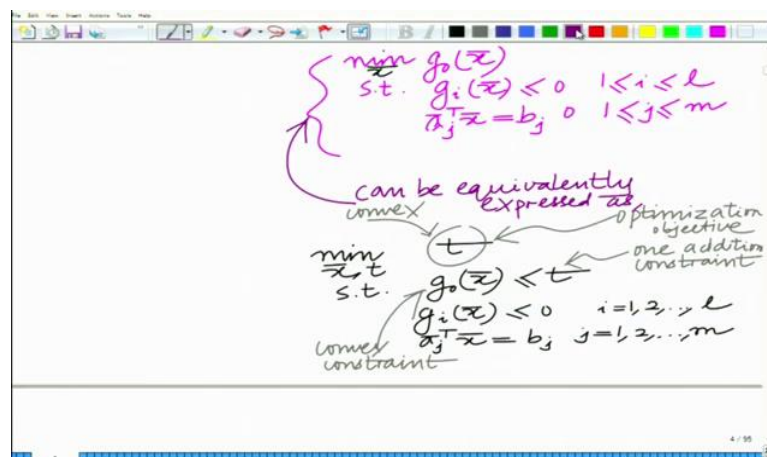 File Edit View Insert Actions Tools Help
min g₀(x̄)
x̄
s.t. gᵢ(x̄) ≤ 0 1 ≤ i ≤ l
āⱼᵀx̄ = bⱼ 0 1 ≤ j ≤ m
can be equivalently
expressed as,
convex
optimization
objective
min t
x̄, t
one addition
constraint
s.t. g₀(x̄) ≤ t
gᵢ(x̄) ≤ 0 i=1,2,..,l
āⱼᵀx̄ = bⱼ j=1,2,..,m
convex
constraint
4 / 95